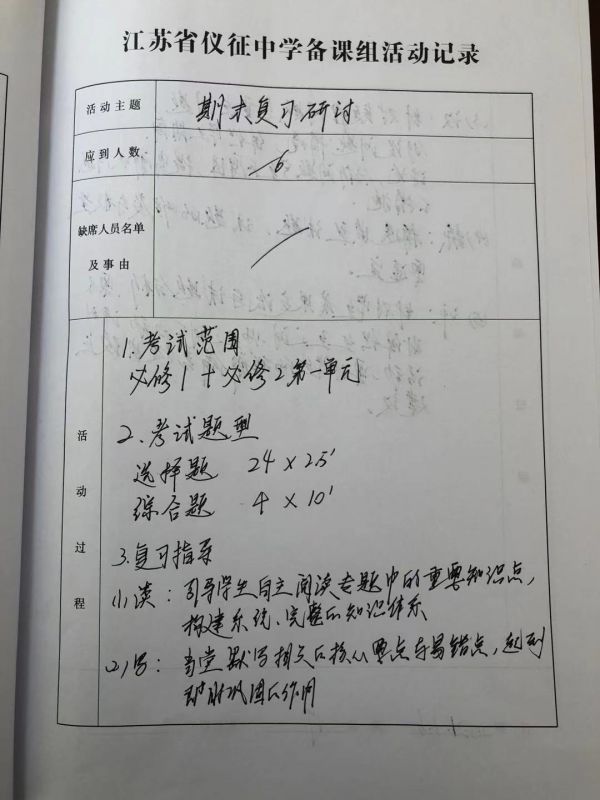 江苏省仪征中学备课组活动记录
活动主题 期末复习研讨
应到人数 6
缺席人员名单
及事由
活动过程
1.考试范围
必修1+必修2第一单元
2.考试题型
选择题 24×2.5'
综合题 4×10'
3.复习指导
(1)读：引导学生自主阅读专题中的重要知识点，
构建系统、完整的知识体系
(2)写：当堂默写相关的核心要点与易错点，起到
及时巩固的作用